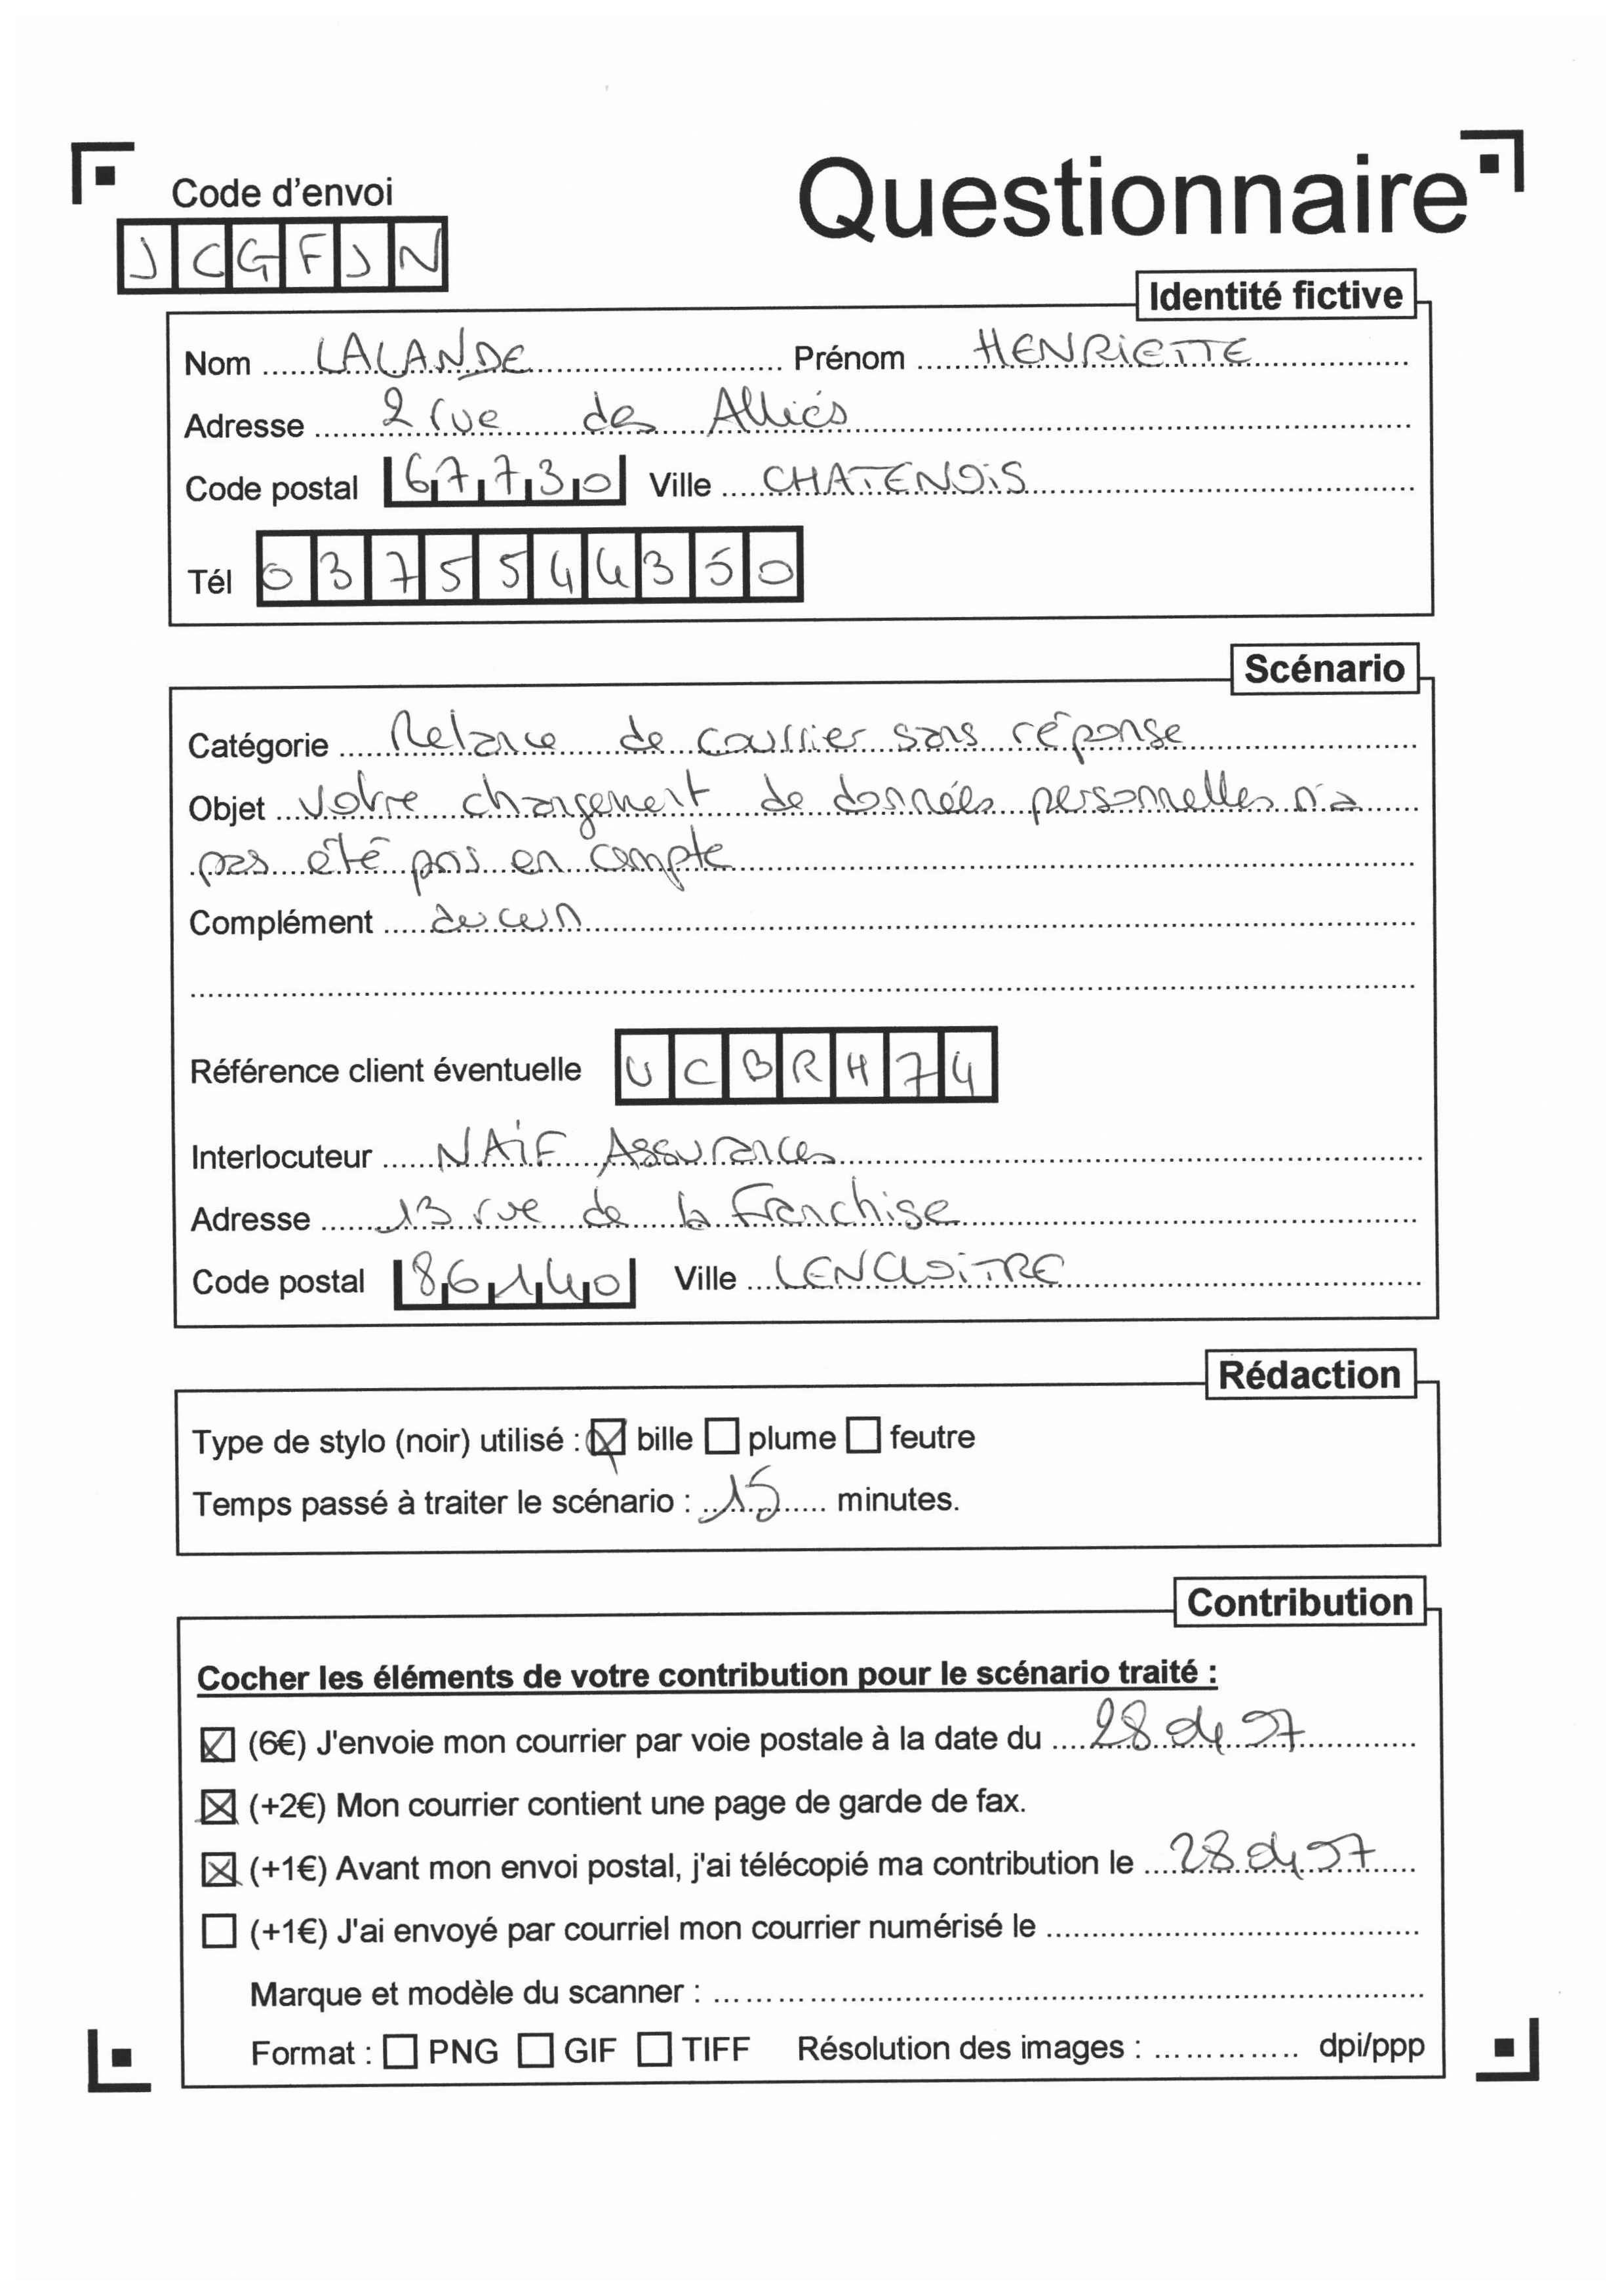 Code d'envoi
Questionnaire
J C G F J N
Identité fictive
Nom LALANDE Prénom HENRIETTE
Adresse 2 rue des Alliés
Code postal 67730 Ville CHATENOIS
Tél 0375544350
Scénario
Catégorie Relance de courrier sans réponse
Objet Votre changement de données personnelles n'a
pas été pris en compte
Complément aucun
Référence client éventuelle U C B R H 7 4
Interlocuteur NAIF Assurances
Adresse 13 rue de la Franchise
Code postal 86140 Ville LENCLOITRE
Rédaction
Type de stylo (noir) utilisé : ☒ bille ☐ plume ☐ feutre
Temps passé à traiter le scénario : 15 minutes.
Contribution
Cocher les éléments de votre contribution pour le scénario traité :
☒ (6€) J'envoie mon courrier par voie postale à la date du 28
☒ (+2€) Mon courrier contient une page de garde de fax.
☒ (+1€) Avant mon envoi postal, j'ai télécopié ma contribution le 28
☐ (+1€) J'ai envoyé par courriel mon courrier numérisé le
Marque et modèle du scanner :
Format : ☐ PNG ☐ GIF ☐ TIFF Résolution des images : dpi/ppp